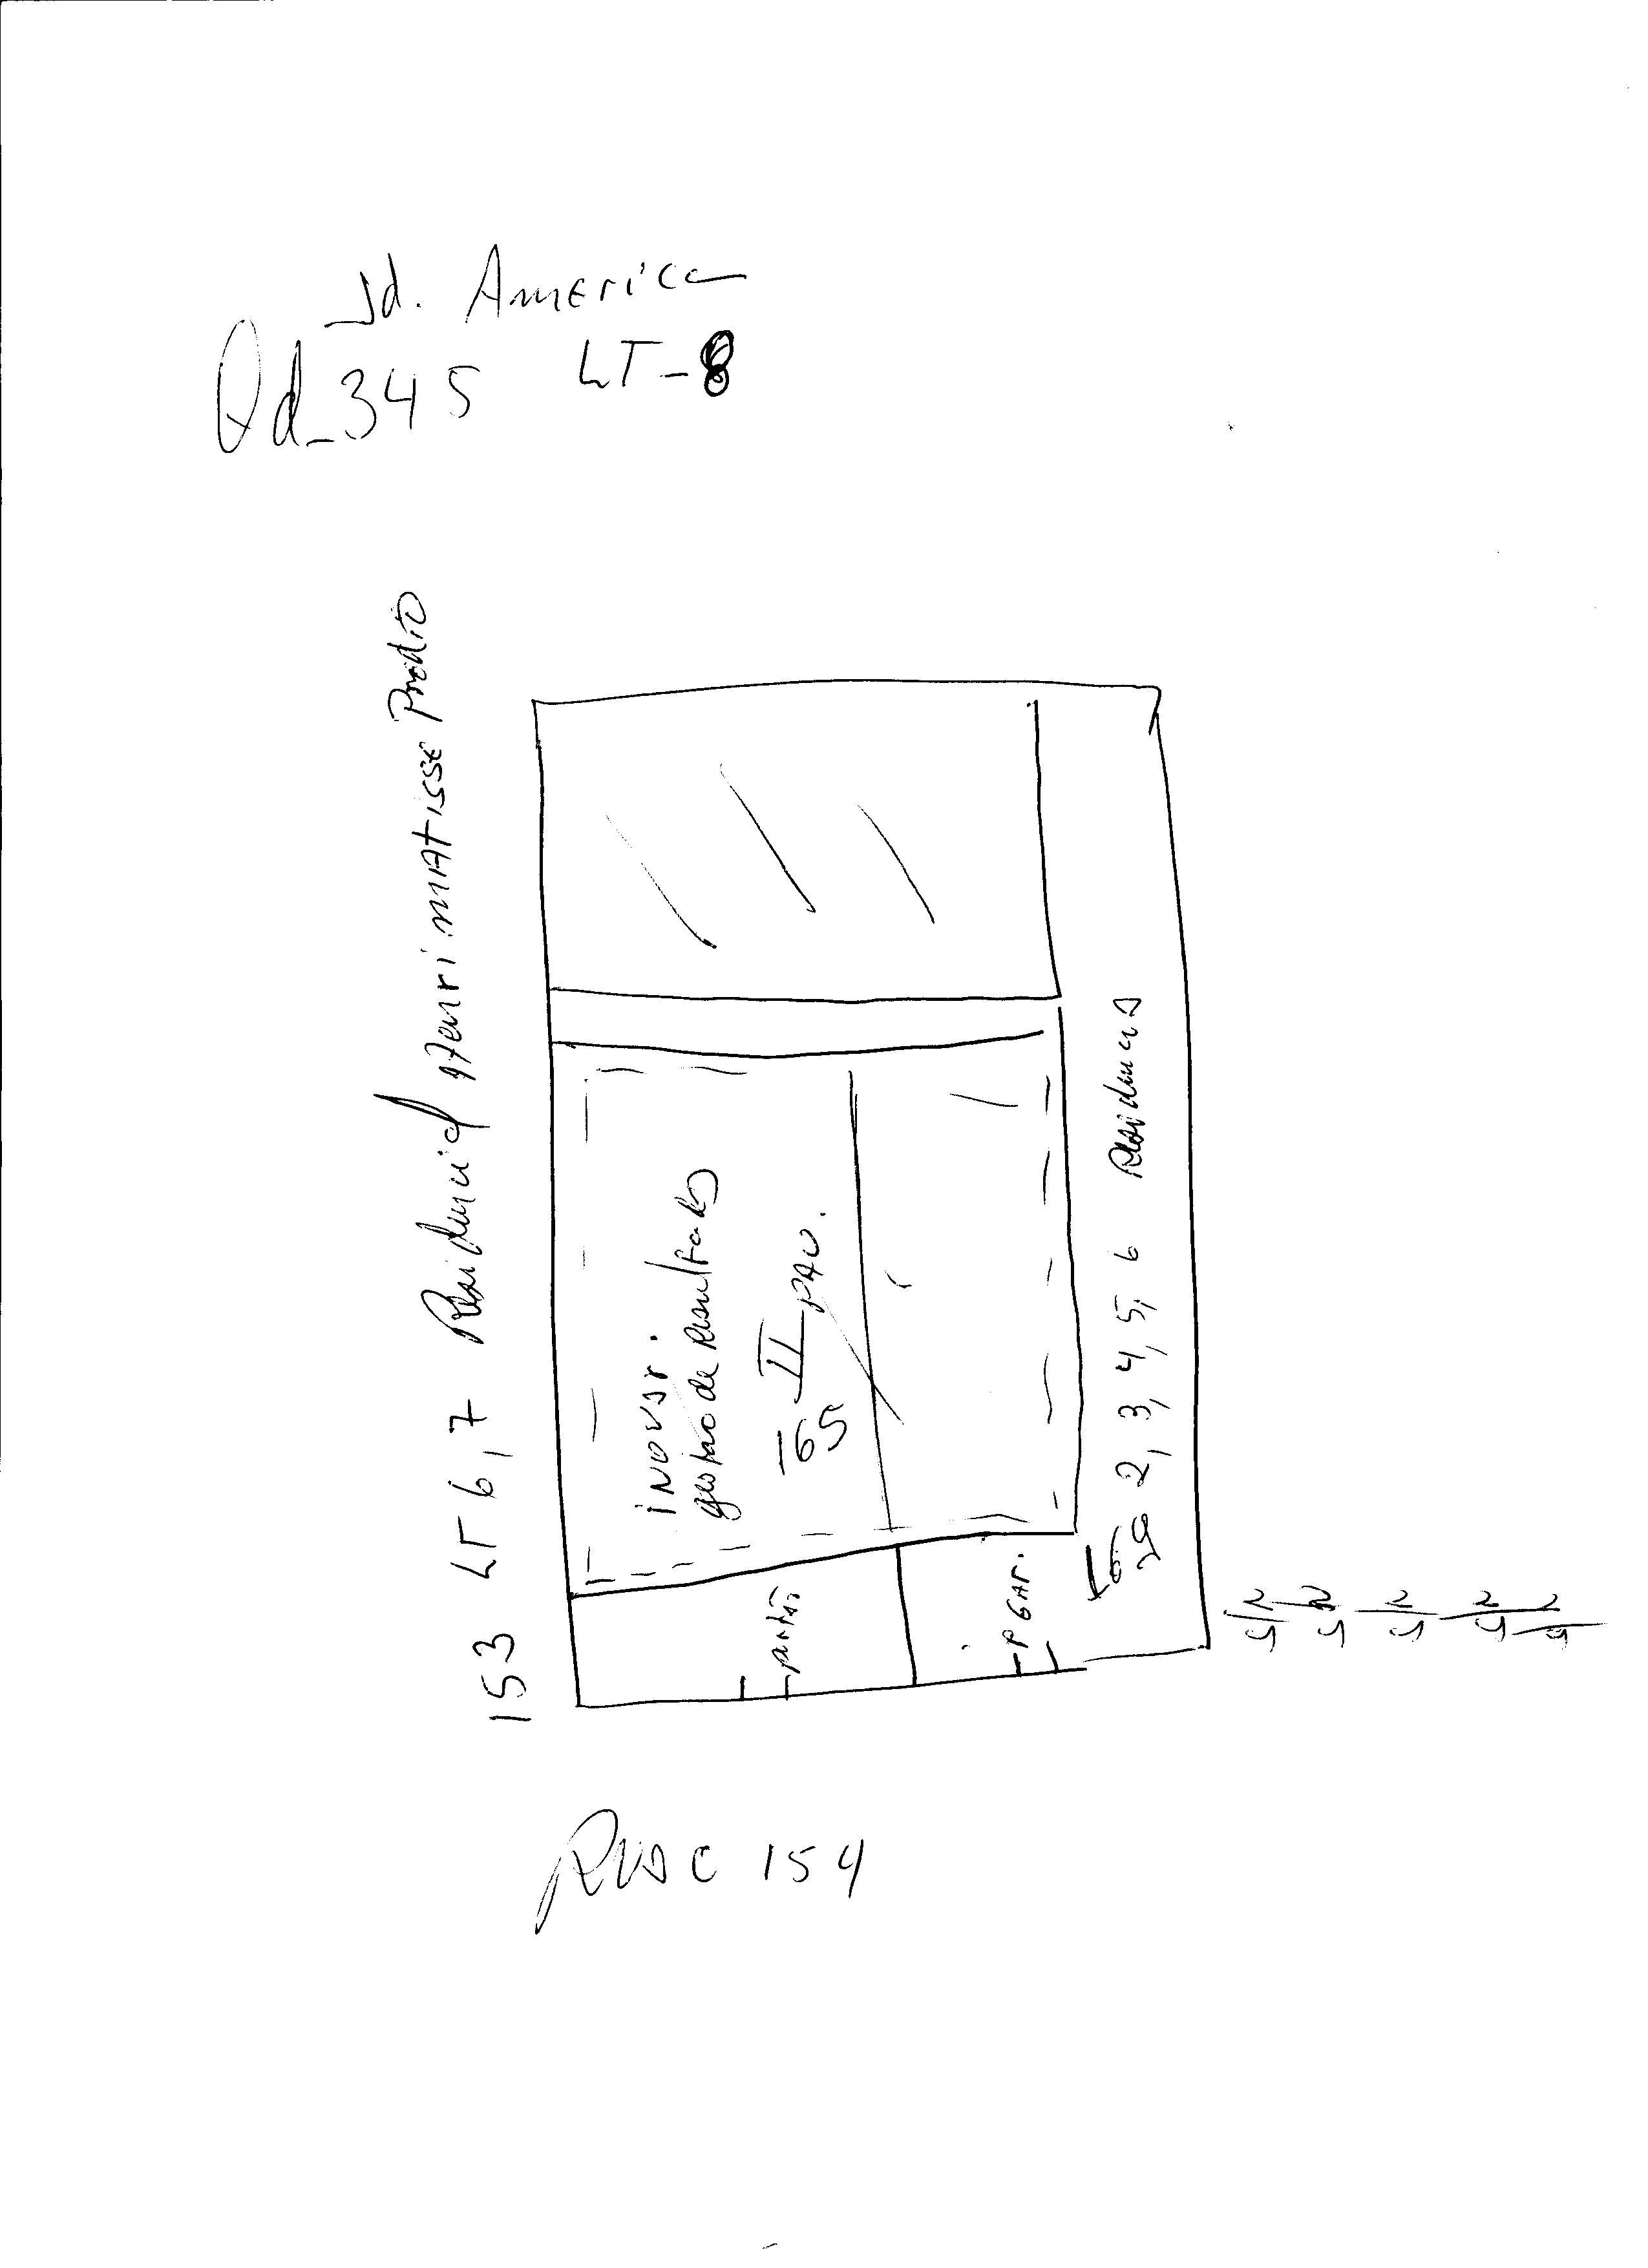 Jd. America
Qd_345 LT-8
153 LT 6,7 Residencial Henri MAtisse Prédio
iNovar.
gestão de Resultados
II PAV.
portão
P GAr.
2, 3, 4, 5, 6 Residencia
154